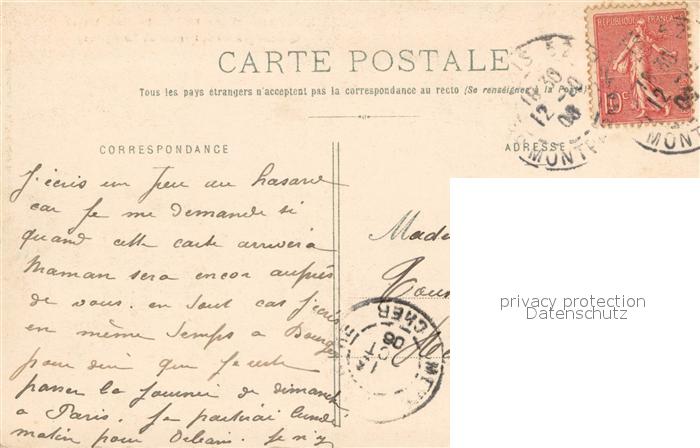 CARTE POSTALE
Tous les pays étrangers n'acceptent pas la correspondance au recto (Se renseigner à la Poste)
RÉPUBLIQUE FRANÇAISE
10c
CORRESPONDANCE
ADRESSE
J'écris un peu au hasard
car je me demande si
quand cette carte arrivera
Maman sera encor auprès
de vous. en tout cas j'écris
en même temps à Bourges
pour dire que je reste
passer la journée de dimanche
à Paris. Je partirai lundi
matin pour Orléans. Je n'y
Mada
privacy protection
Datenschutz
CHER